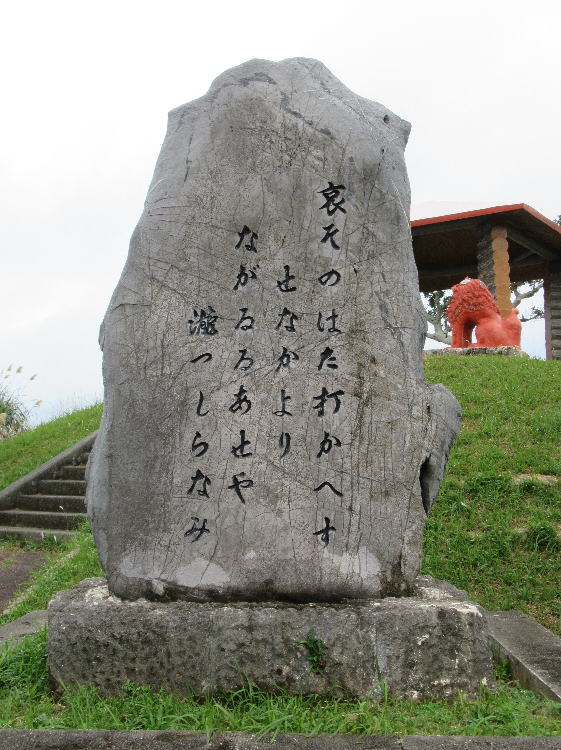 哀その はた打かへす
せなかより
ながるゝあせや
瀧つしらなみ